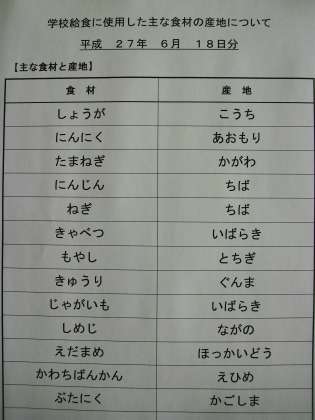 学校給食に使用した主な食材の産地について
平成 27年 6月 18日分
【主な食材と産地】
食 材 産 地
しょうが こうち
にんにく あおもり
たまねぎ かがわ
にんじん ちば
ねぎ ちば
きゃべつ いばらき
もやし とちぎ
きゅうり ぐんま
じゃがいも いばらき
しめじ ながの
えだまめ ほっかいどう
かわちばんかん えひめ
ぶたにく かごしま